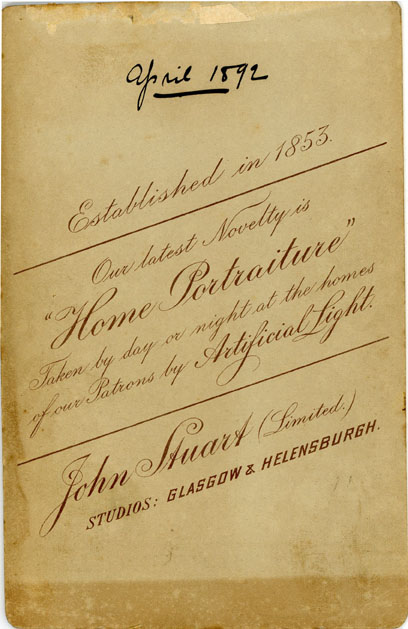 April 1892
Established in 1853.
Our latest Novelty is
"Home Portraiture"
Taken by day or night at the homes
of our Patrons by Artificial Light.
John Stuart (Limited.)
STUDIOS: GLASGOW & HELENSBURGH.